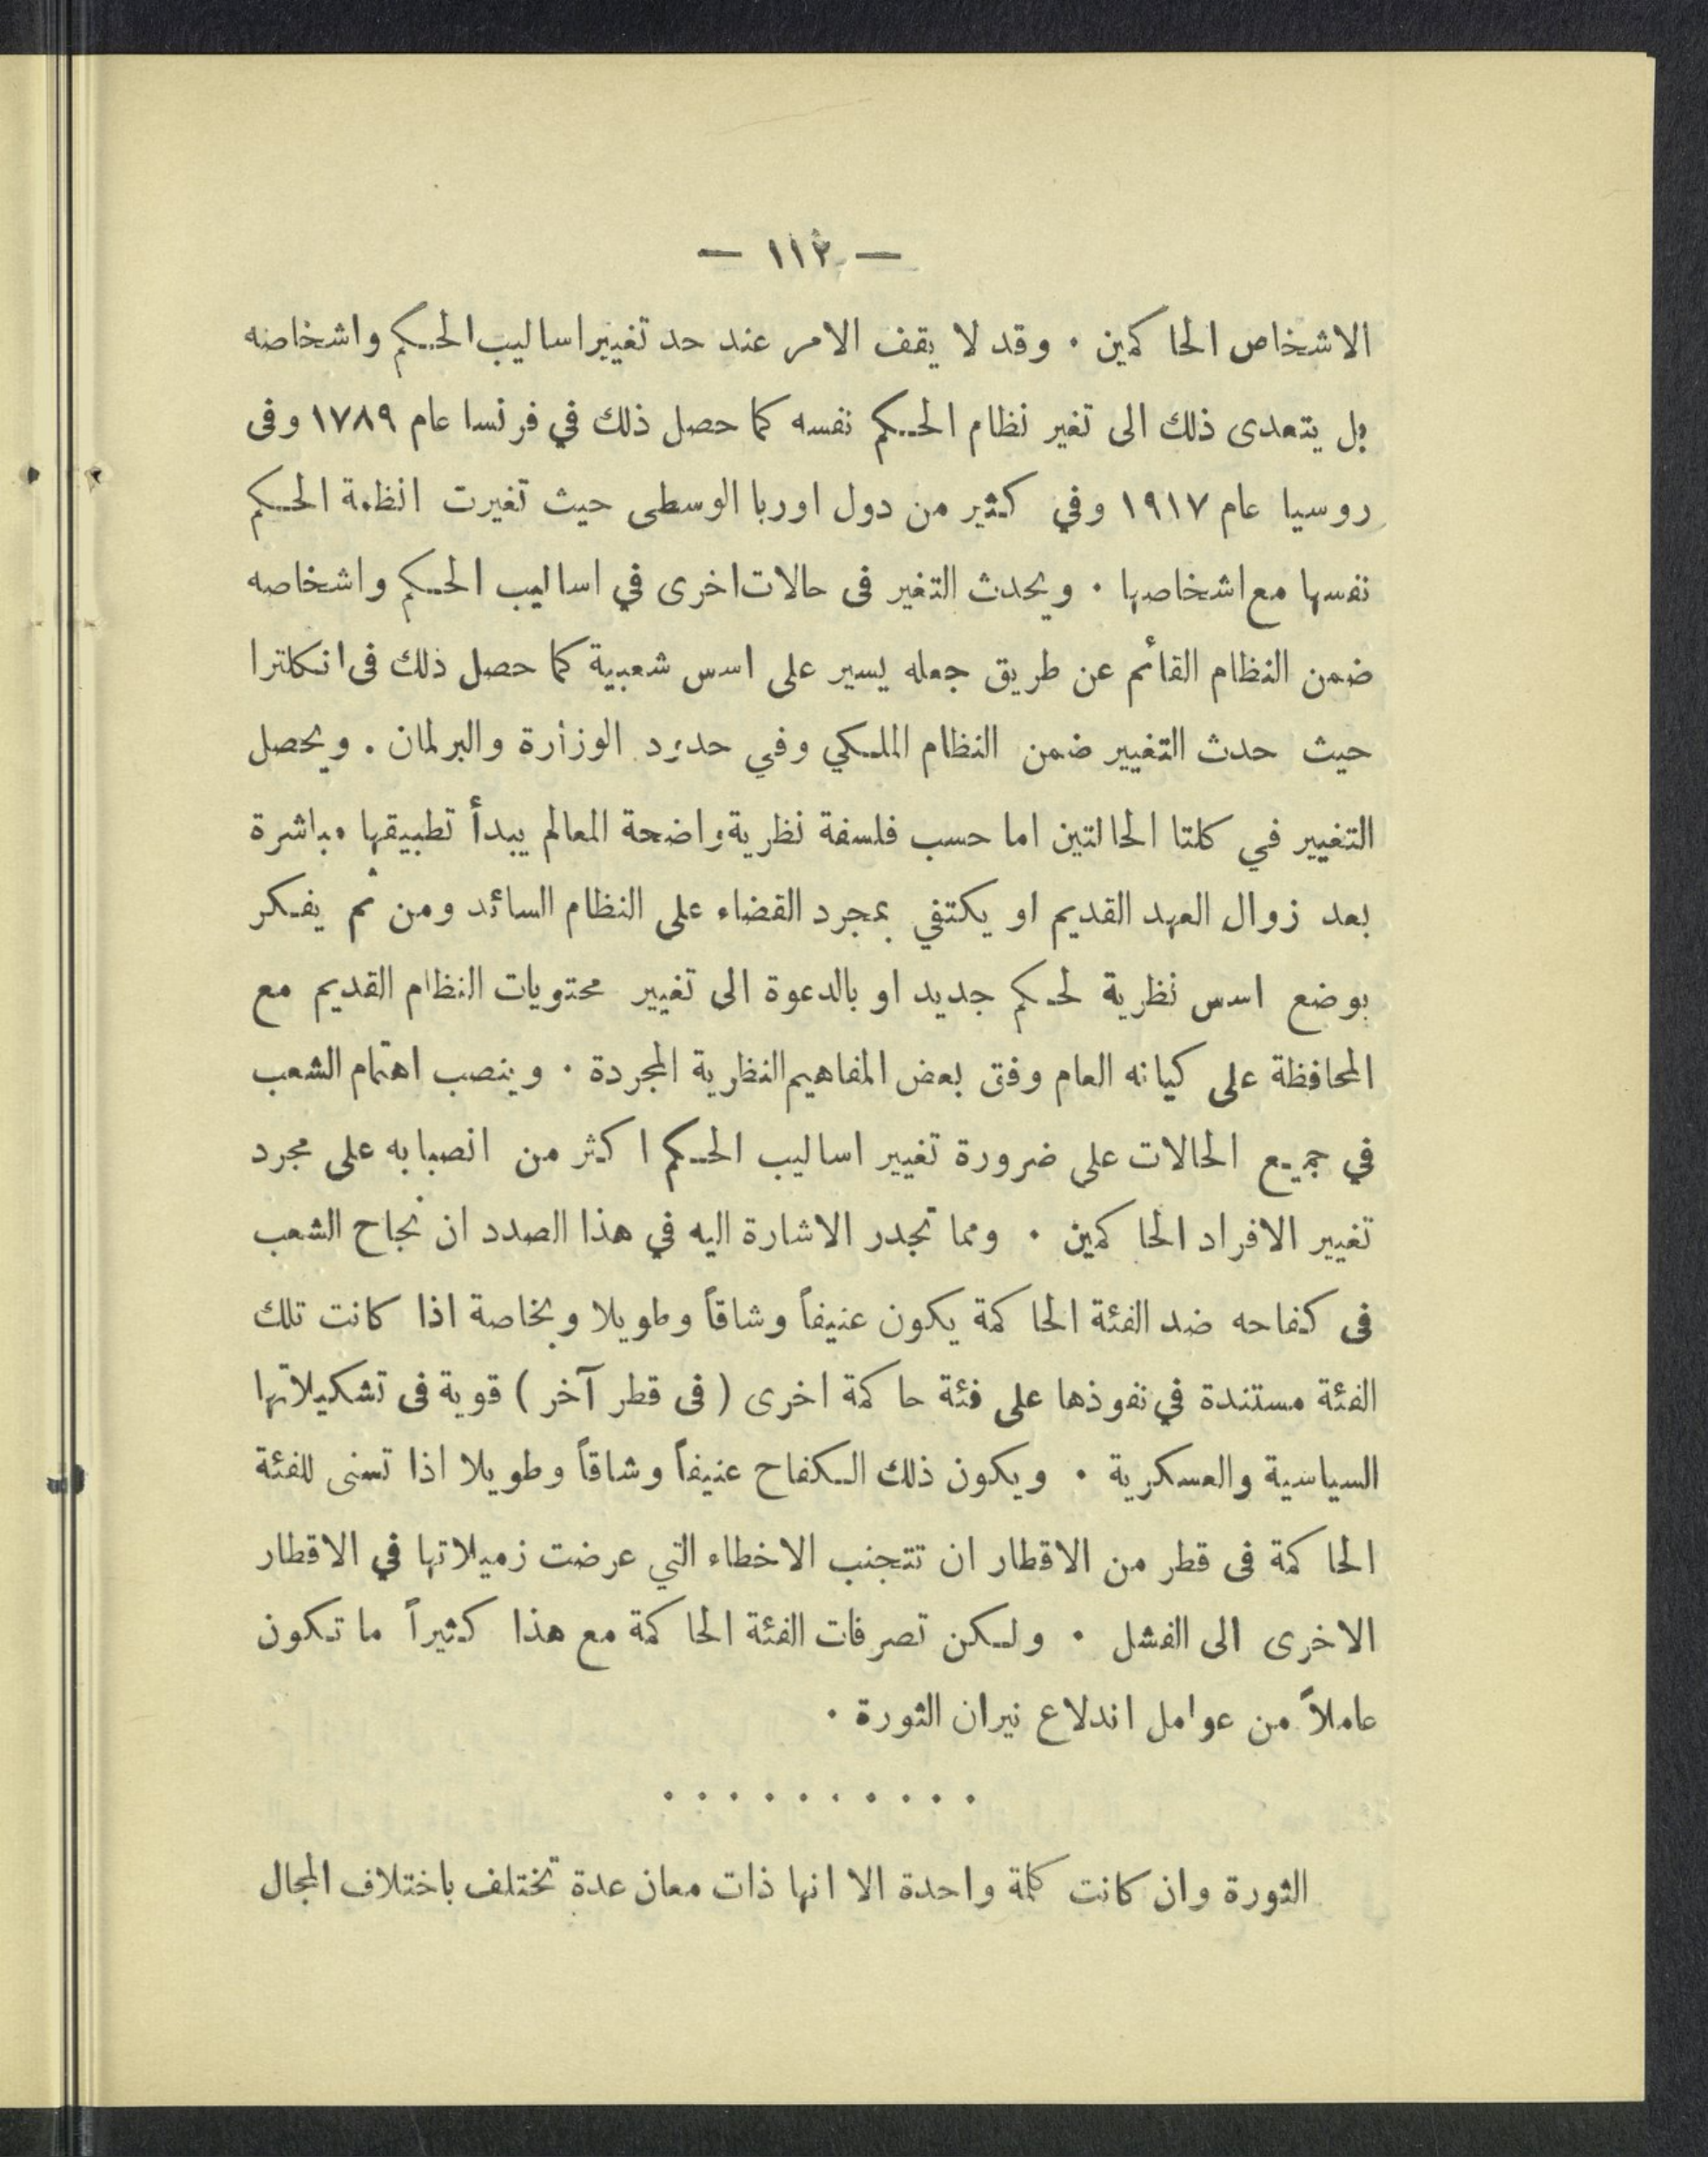 — ١١٢ —
الاشخاص الحاكمين . وقد لا يقف الامر عند حد تغيير اساليب الحكم واشخاصه
بل يتعدى ذلك الى تغير نظام الحكم نفسه كما حصل ذلك في فرنسا عام ١٧٨٩ وفى
روسيا عام ١٩١٧ وفي كثير من دول اوربا الوسطى حيث تغيرت انظمة الحكم
نفسها مع اشخاصها . ويحدث التغير فى حالات اخرى في اساليب الحكم واشخاصه
ضمن النظام القائم عن طريق جعله يسير على اسس شعبية كما حصل ذلك فى انكلترا
حيث حدث التغيير ضمن النظام الملكي وفي حدود الوزارة والبرلمان . ويحصل
التغيير في كلتا الحالتين اما حسب فلسفة نظرية واضحة المعالم يبدأ تطبيقها مباشرة
بعد زوال العهد القديم او يكتفي بمجرد القضاء على النظام السائد ومن ثم يفكر
بوضع اسس نظرية لحكم جديد او بالدعوة الى تغيير محتويات النظام القديم مع
المحافظة على كيانه العام وفق بعض المفاهيم النظرية المجردة . وينصب اهتمام الشعب
في جميع الحالات على ضرورة تغيير اساليب الحكم اكثر من انصبابه على مجرد
تغيير الافراد الحاكمين . ومما تجدر الاشارة اليه في هذا الصدد ان نجاح الشعب
فى كفاحه ضد الفئة الحاكمة يكون عنيفاً وشاقاً وطويلا وبخاصة اذا كانت تلك
الفئة مستندة في نفوذها على فئة حاكمة اخرى ( فى قطر آخر ) قوية فى تشكيلاتها
السياسية والعسكرية . ويكون ذلك الكفاح عنيفاً وشاقاً وطويلا اذا تسنى للفئة
الحاكمة فى قطر من الاقطار ان تتجنب الاخطاء التي عرضت زميلاتها في الاقطار
الاخرى الى الفشل . ولكن تصرفات الفئة الحاكمة مع هذا كثيراً ما تكون
عاملاً من عوامل اندلاع نيران الثورة .
. . . . . . . . . .
الثورة وان كانت كلمة واحدة الا انها ذات معان عدة تختلف باختلاف المجال